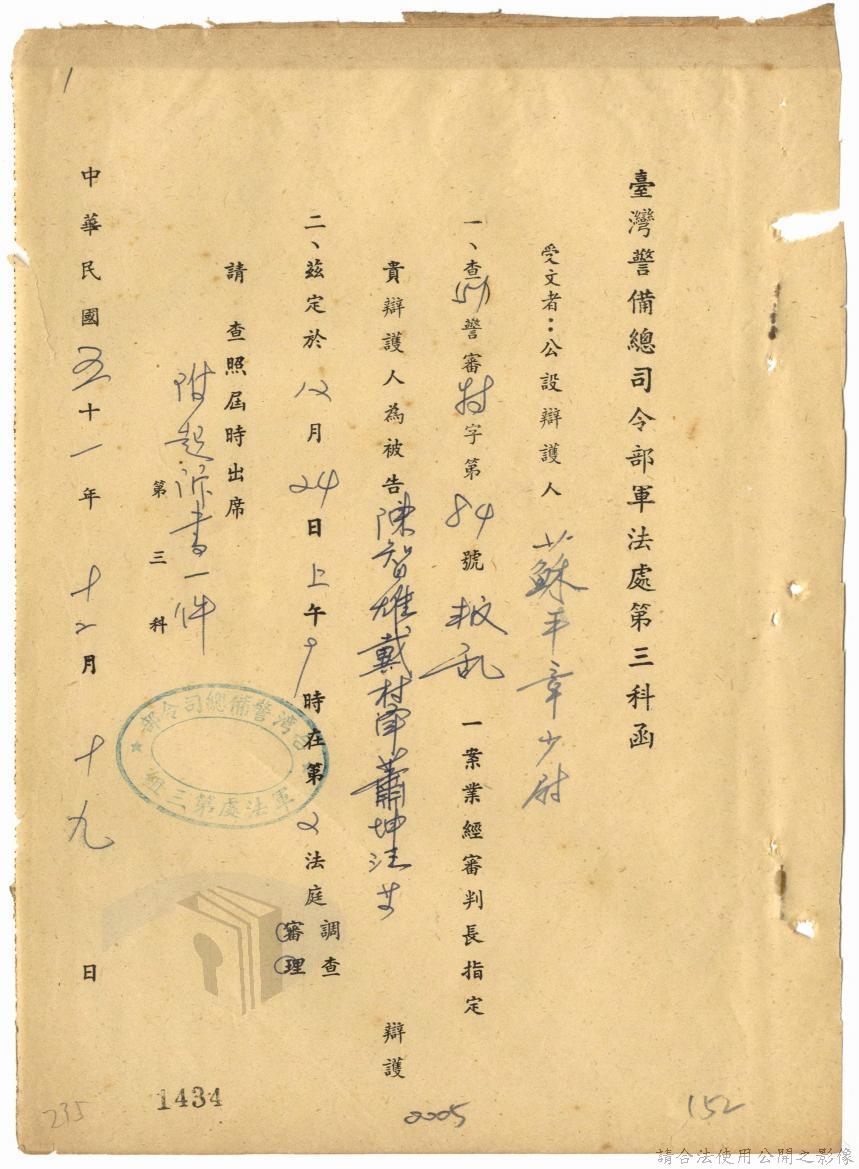 臺灣警備總司令部軍法處第三科函
受文者：公設辯護人 蘇丰章少尉
一、查(51)警審特字第84號叛乱一案業經審判長指定
貴辯護人為被告陳智雄戴村澤蕭坤旺等 辯護
二、茲定於12月24日上午9時在第2法庭調查審理
請 查照屆時出席
附起訴書一件
第三科
中華民國五十一年十二月十九日
台灣警備總司令部
軍法處第三組
1
1434
235
2005
152
請合法使用公開之影像